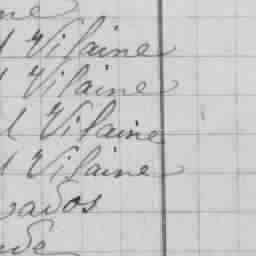 ne
l Vilaine
l Vilaine
l Vilaine
l Vilaine
vados
nde